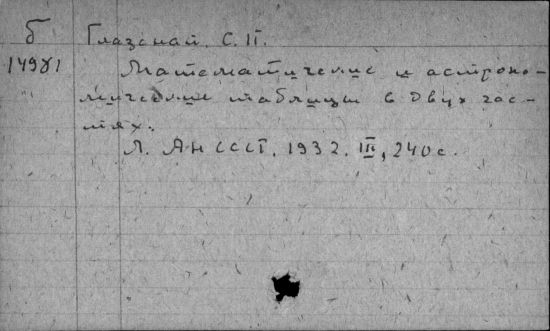 Б Глазенап, С. П.
14981 Математические и астроно-
мические таблицы в двух час-
тях.
Л. АН СССР, 1932. III, 240 с.